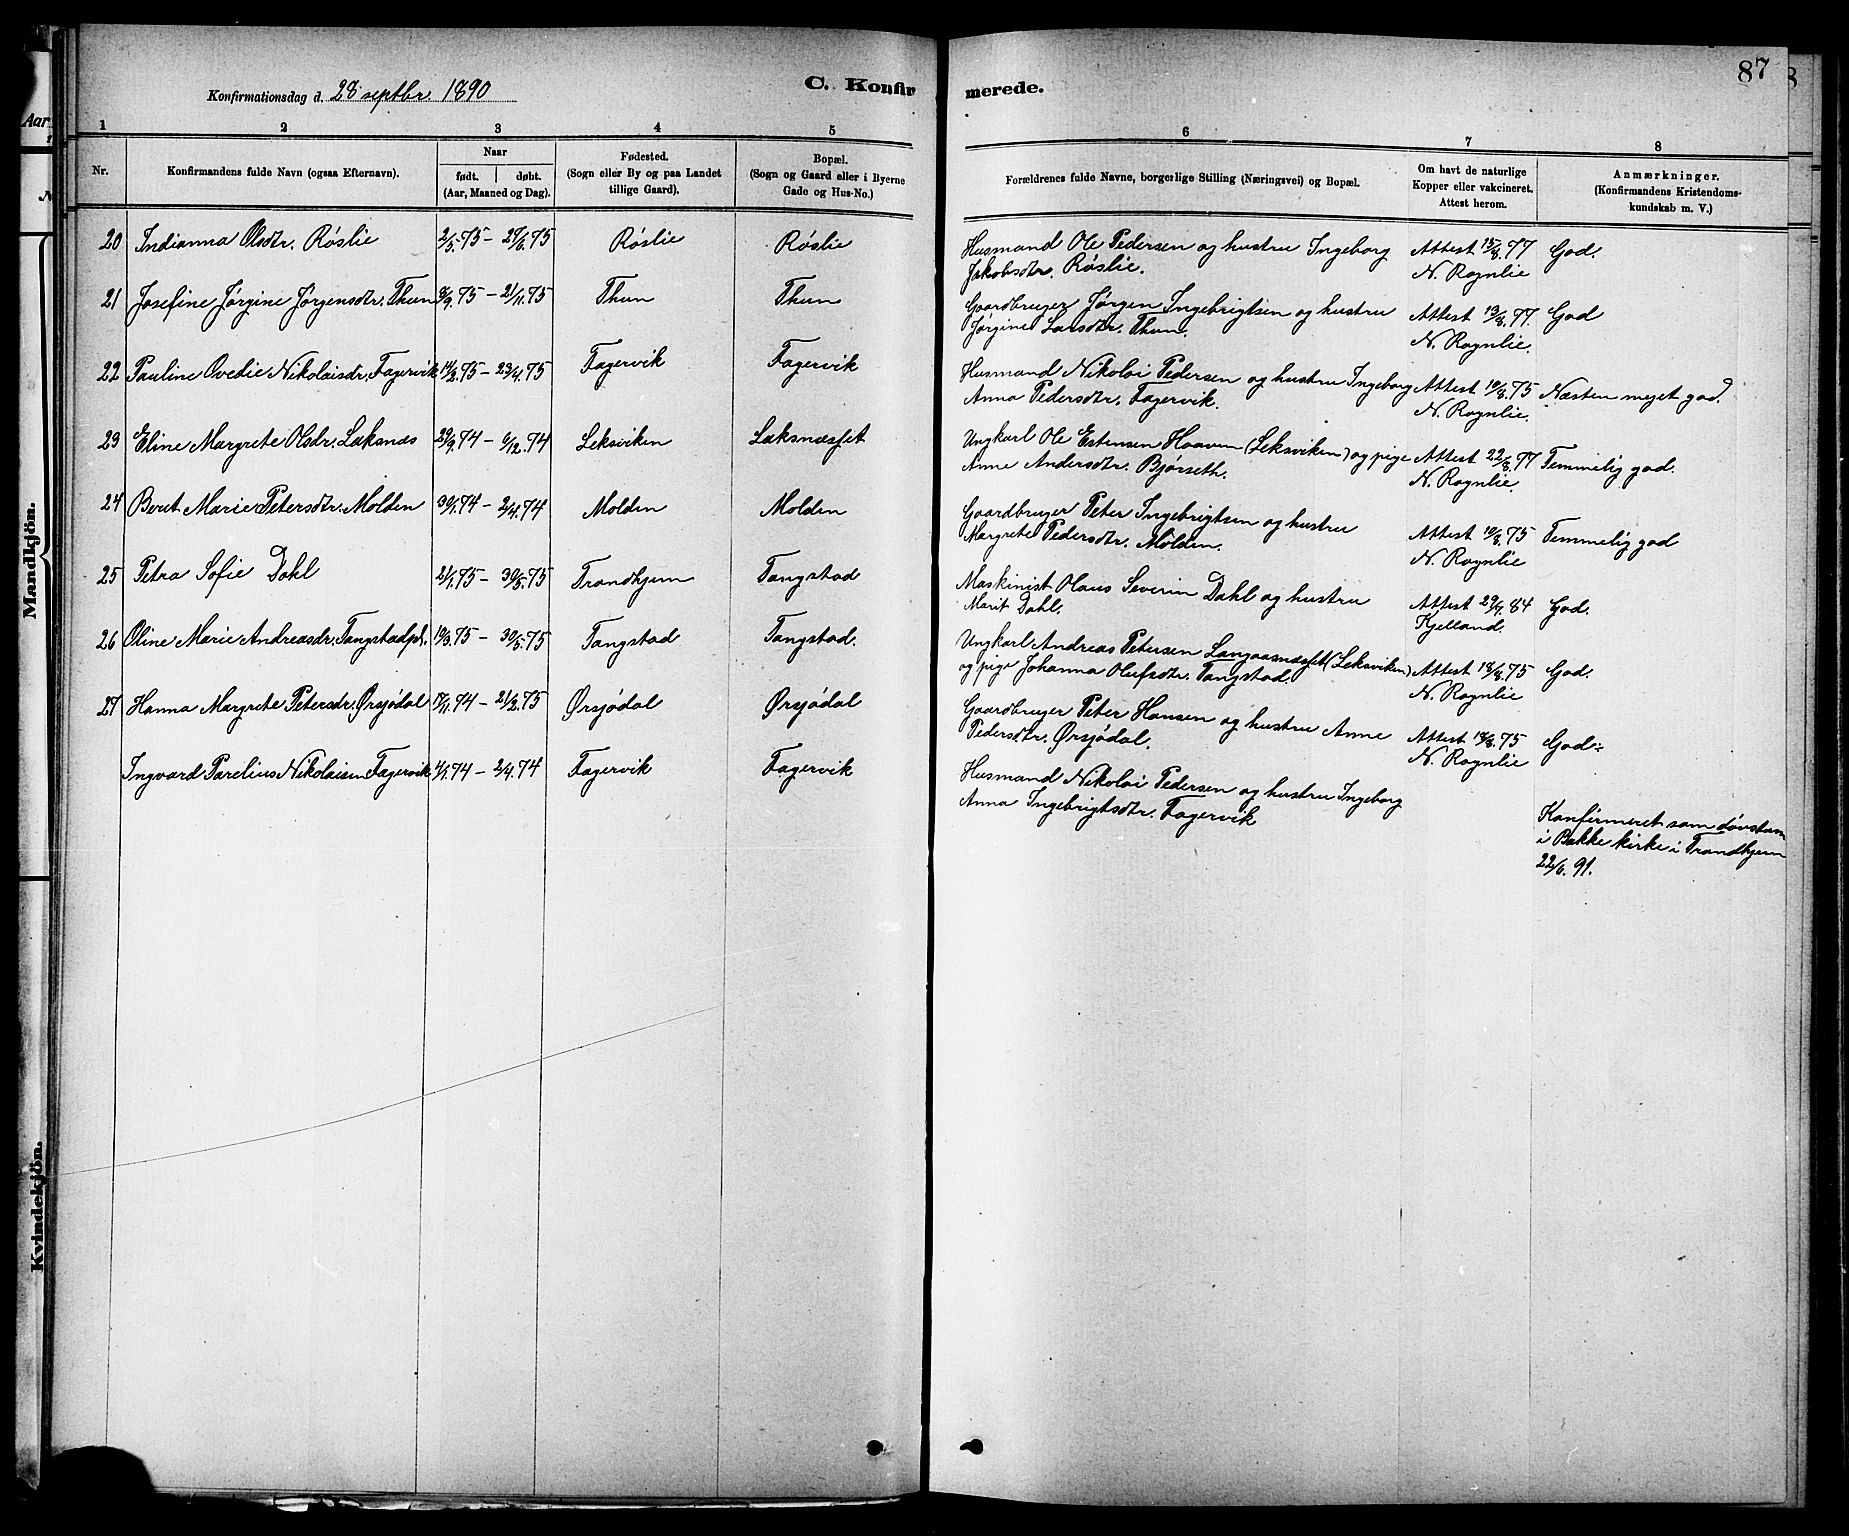 87
Konfirmationsdag d. 28 septbr. 1890
C. Konfirmerede.
1 2 3 4 5 6 7 8
Nr.
Konfirmandens fulde Navn (ogsaa Efternavn).
Naar
født. døbt.
(Aar, Maaned og Dag).
Fødested.
(Sogn eller By og paa Landet
tillige Gaard).
Bopæl.
(Sogn og Gaard eller i Byerne
Gade og Hus-No.)
Forældrenes fulde Navne, borgerlige Stilling (Næringsvei) og Bopæl.
Om havt de naturlige
Kopper eller vakcineret.
Attest herom.
Anmærkninger.
(Konfirmandens Kristendoms-
kundskab m. V.)
20 Indianna Olsdtr. Røslie 2/5.75 – 27/6.75 Røslie Røslie Husmand Ole Pedersen og hustru Ingeborg Attest 15/8.77 God.
Jakobsdtr. Røslie. N. Rognlie
21 Josefine Jørgine Jørgensdtr. Thun 8/9.75 – 21/11.75 Thun Thun Gaardbruger Jørgen Ingebrigtsen og hustru Attest 13/8.77. God
Jørgine Larsdtr. Thun. N. Rognlie.
22 Pauline Ovedie Nikolaisdr. Fagervik 14/2.75 – 23/4.75 Fagervik Fagervik Husmand Nikolai Pedersen og hustru Ingeborg Attest 10/8.75 Næsten meget god.
Anna Pedersdtr. Fagervik. N. Rognlie.
23 Eline Margrete Olsdr. Laksnæs 29/9.74 – 6/12.74 Leksviken Laksnæsfet Ungkarl Ole Estensen Haaven (Leksviken) og pige Attest 22/8.77 Temmelig god.
Anne Andersdtr. Bjørseth. N. Rognlie.
24 Berit Marie Petersdtr. Molden 30/1.74 – 2/4.74 Molden Molden Gaardbruger Peter Ingebrigtsen og hustru Attest 10/8.75 Temmelig god
Margrete Pedersdtr. Molden. N. Rognlie
25 Petra Sofie Dahl 2/1.75 – 30/5.75 Trondhjem Tangstad Maskinist Olaus Severin Dahl og hustru Attest 29/7.84 God.
Marit Dahl. Kjelland.
26 Oline Marie Andreasdr. Tangstadpl. 19/3.75 – 30/5.75 Tangstad Tangstad. Ungkarl Andreas Petersen Langaasnæsfet (Leksviken) Attest 18/8.75 God.
og pige Johanna Olufsdtr. Tangstad. N. Rognlie
27 Hanna Margrete Petersdr. Ørsjødal 17/11.74 – 21/2.75 Ørsjødal Ørsjødal Gaardbruger Peter Hansen og hustru Anne Attest 18/8.75 God
Pedersdtr. Ørsjødal. N. Rognlie
Ingvard Parelius Nikolaisen Fagervik 4/1.74 – 2/4.74 Fagervik Fagervik Husmand Nikolai Pedersen og hustru Ingeborg
Anna Ingebrigtsdtr. Fagervik
Konfirmeret som døvstum
i Bakke kirke i Trondhjem
22/6.91.
Aar
Mandkjön.
Kvindekjön.